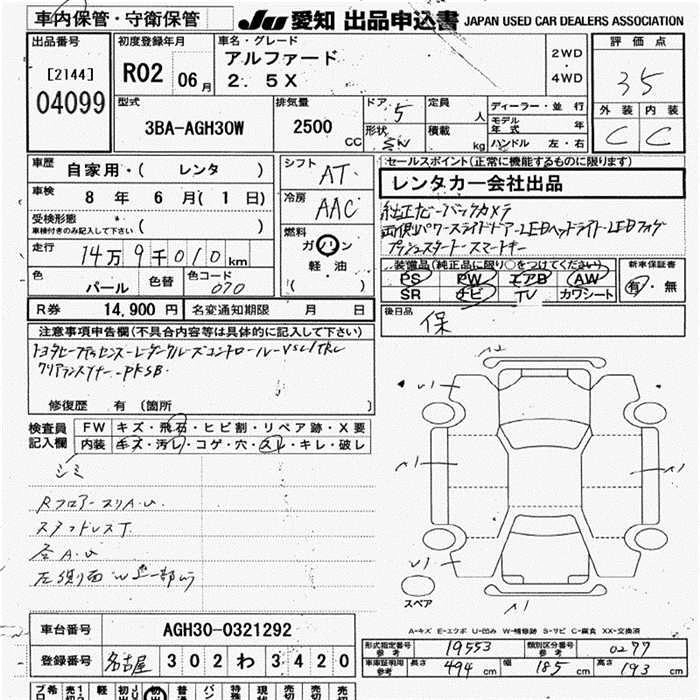 車内保管・守衛保管
JU 愛知 出品申込書 JAPAN USED CAR DEALERS ASSOCIATION
出品番号
[2144]
04099
初度登録年月
R02 06月
車名・グレード
アルファード
2.5X
2WD
・
4WD
評価点
3.5
外装 内装
C C
型式
3BA-AGH30W
排気量
2500 CC
ドア 5
形状 SW
定員 人
積載 kg
ディーラー・並行
モデル年式 年
ハンドル 左・右
車歴 自家用・( レンタ )
車検 8年 6月( 1日)
受検形態
車検付きのみ記入して下さい ( )
走行 14万9千010km
色 パール 色替
色コード 070
シフト AT
冷房 AAC
燃料
ガソリン
軽・油
( )
セールスポイント(正常に機能するものに限ります)
レンタカー会社出品
純正ナビ・バックカメラ
両側パワースライドドアー・LEDヘッドライト・LEDフォグ
プッシュスタート・スマートキー
装備品(純正品に限り○をつけてください)
PS PW エアB AW
SR ナビ TV カワシート
新車保証書
有・無
後日品
保
R券 14,900円 名変通知期限 月 日
注意事項申告欄(不具合内容等は具体的に記入して下さい)
トヨタセーフティセンス・レーダークルーズコントロール・VSC/TRC
クリアランスソナー・PKSB
修復歴 有 (箇所 )
検査員記入欄
FW キズ・飛石・ヒビ割・リペア跡・X要
内装 キズ・汚レ・コゲ・穴・スレ・キレ・破レ
シミ
RフロアースリA.U
スタッドレスT
左側面W
A2
U1
A1
A1
A1
U1
A1
スペア
A-キズ E-エクボ U-凹み W-補修跡 S-サビ C-腐食 XX-交換済
車台番号 AGH30-0321292
登録番号 名古屋 302 わ 3420
形式指定番号 参考 19553
類別区分番号 参考 0277
車庫証明用 参考 長さ 494cm 幅 185cm 高さ 193cm